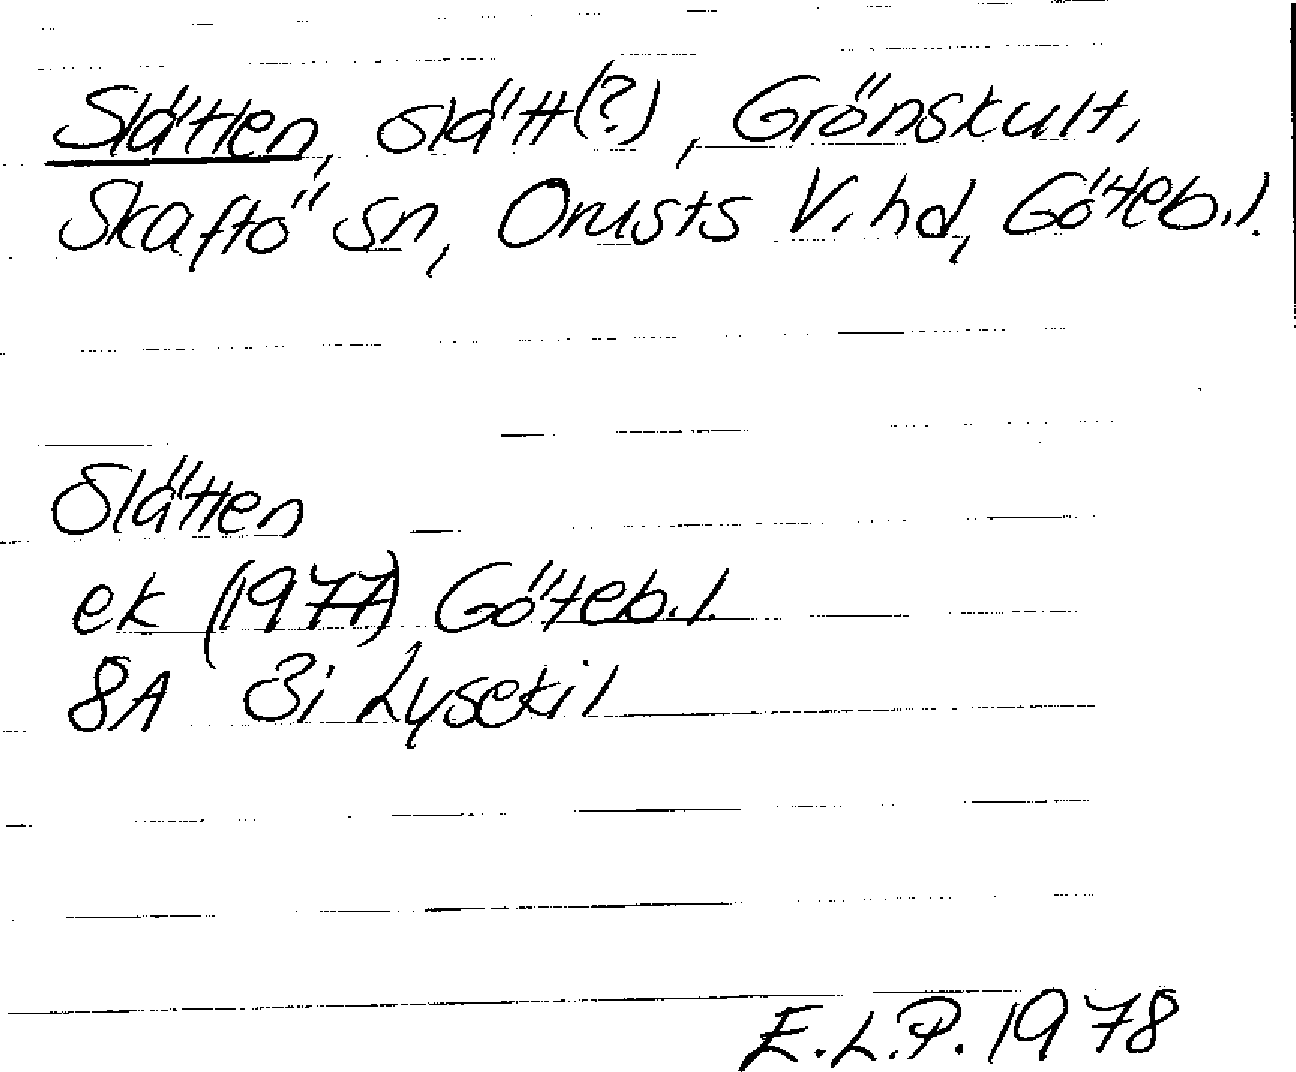 Slätten, slätt(?), Grönskult,
Skaftö sn, Orusts V. hd, Göteb.l.
Slätten
ek (1977) Göteb.l.
8A 3i Lysekil
E.L.P. 1978